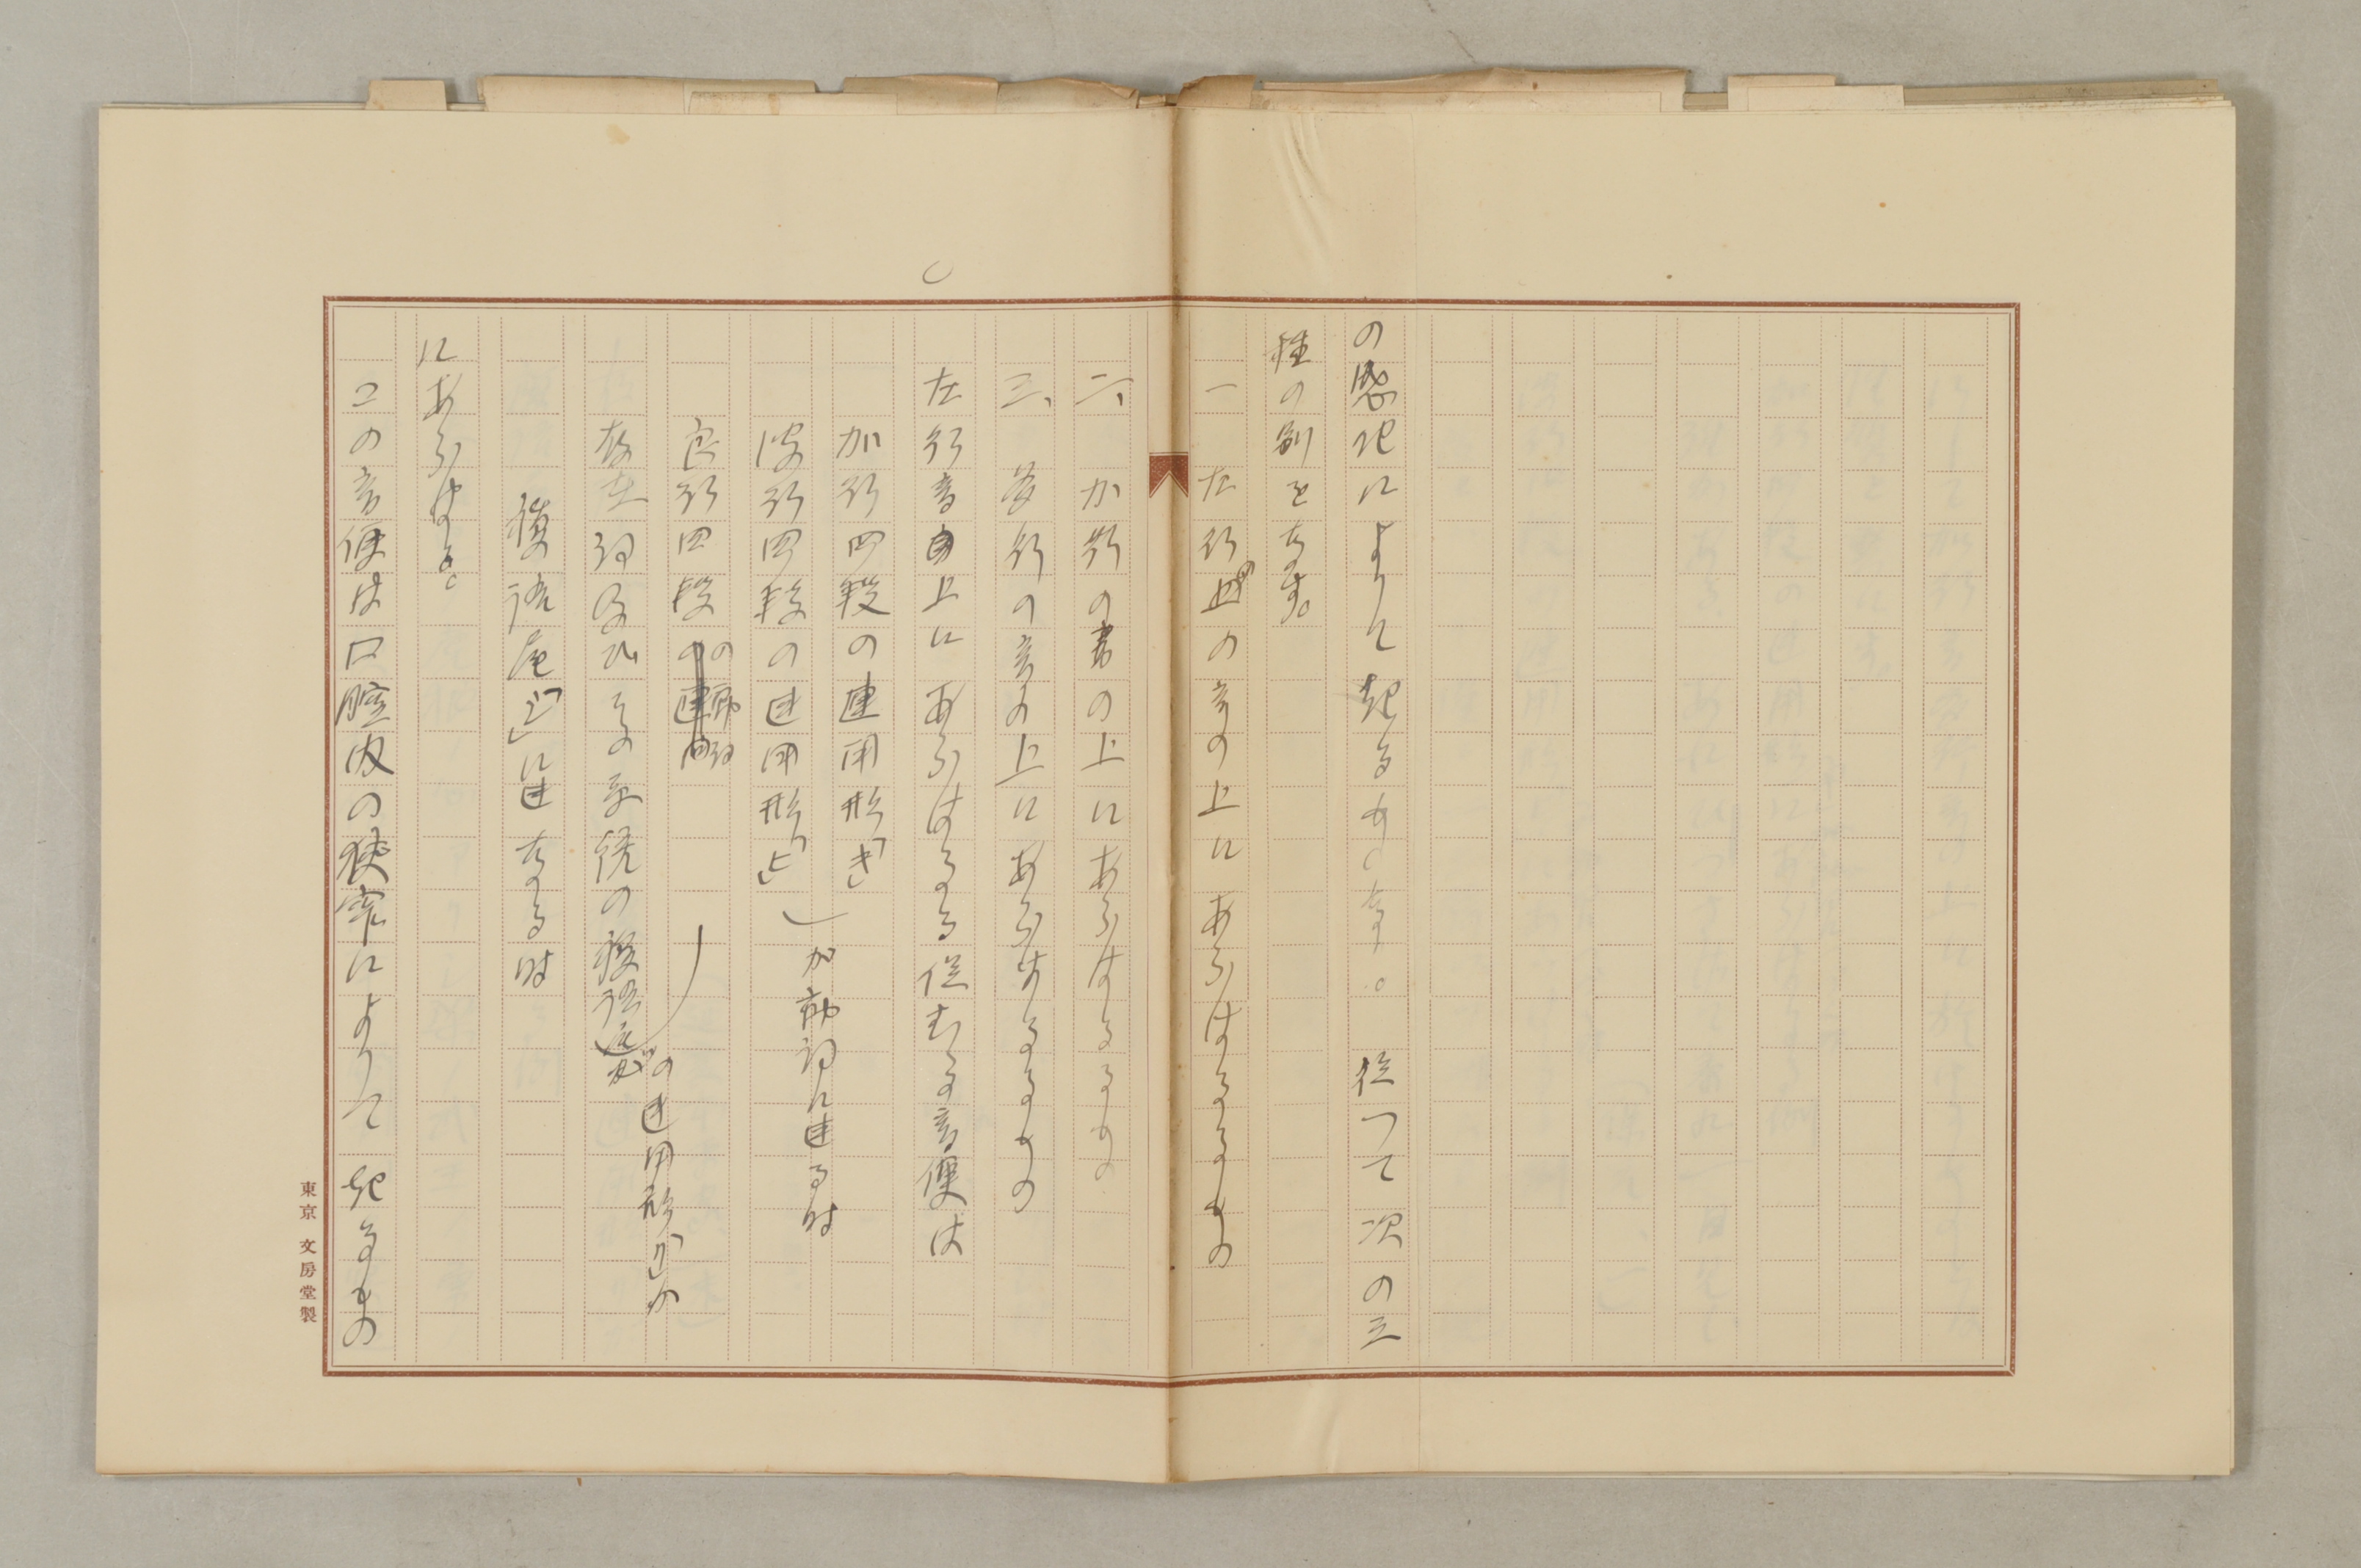 の感化によりて起るものなり。従つて次の三
種の別をなす。
一 た行の音の上にあらはるるもの
二、か行の音の上にあらはるるもの
三、さ行の音の上にあらはるるもの
た行音上にあらはるる促むる音便は
加行四段の連用形「き」
波行四段の連用形「ひ」 加動詞に連る時
良行四段の動詞
存在詞及びその系統の複語尾 の連用形「り」が
複語尾「て」に連なる時
にあらはる。
この音便は口腔内の狭窄によりて起るもの
東京 文房堂製